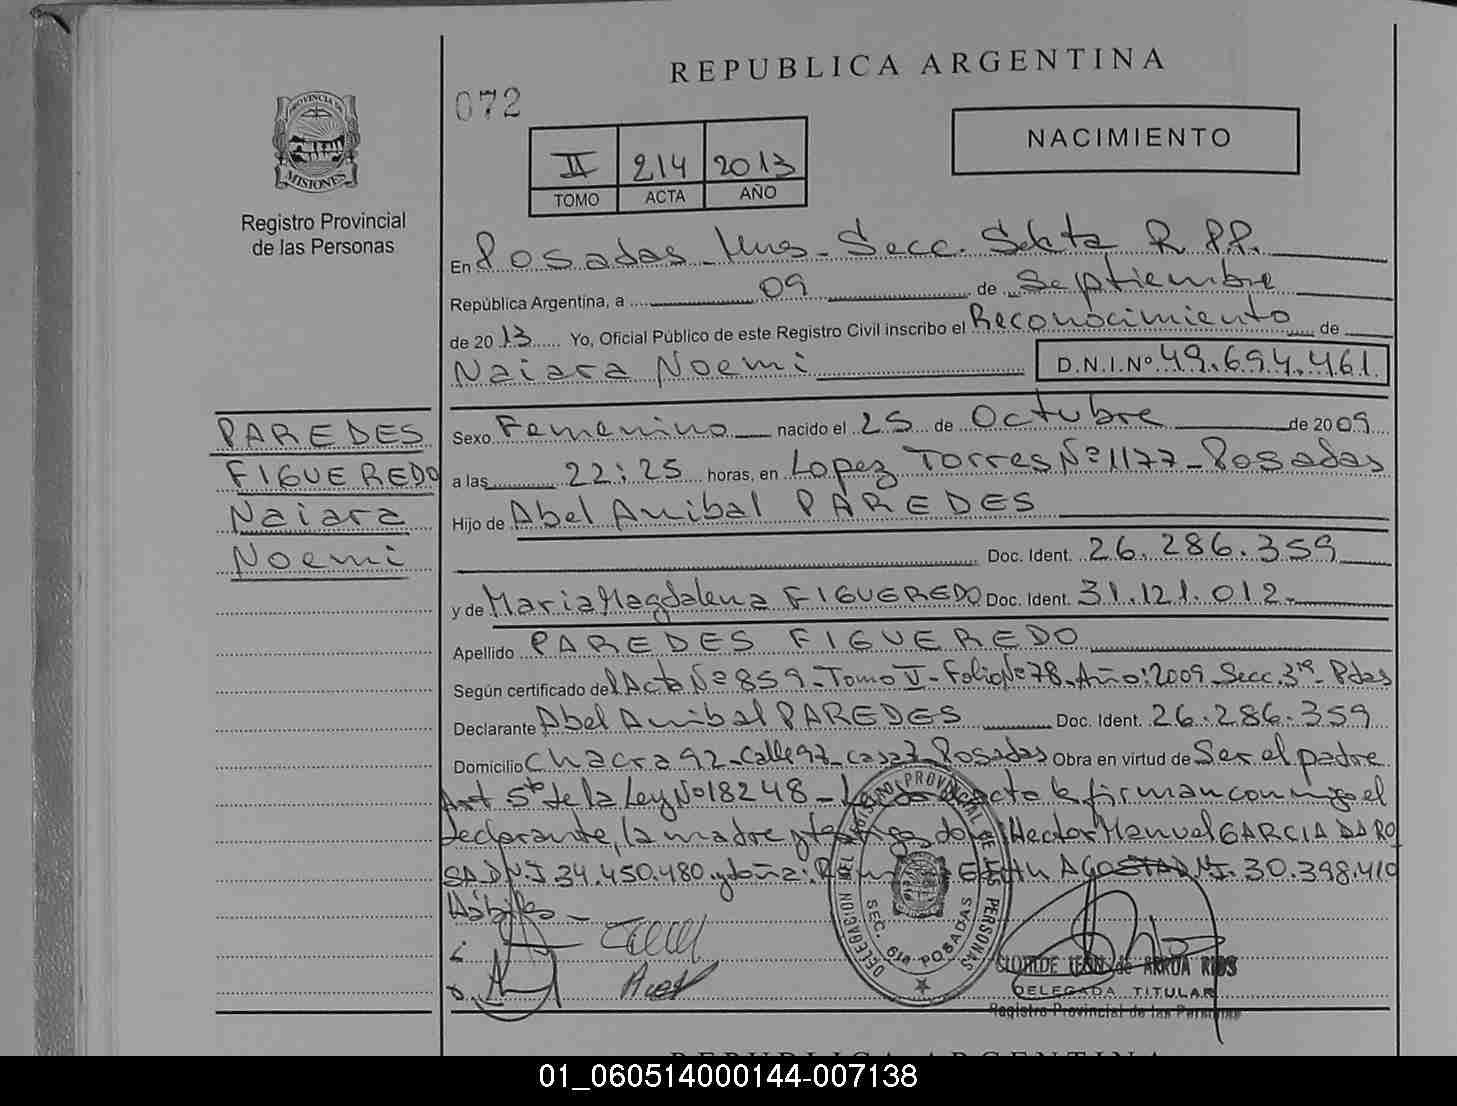 REPUBLICA ARGENTINA
072
NACIMIENTO
II 214 2013
TOMO ACTA AÑO
PROVINCIA DE
MISIONES
Registro Provincial
de las Personas
En Posadas - Mnes - Secc. Sexta R.PP.
República Argentina, a 09 de Septiembre
de 2013 Yo, Oficial Público de este Registro Civil inscribo el Reconocimiento de
Naiara Noemi D.N.I.Nº 49.694.461
PAREDES
FIGUEREDO
Naiara
Noemi
Sexo Femenino nacido el 25 de Octubre de 2009
a las 22:25 horas, en Lopez Torres Nº 1177 - Posadas
Hijo de Abel Anibal PAREDES
Doc. Ident. 26.286.359
y de Maria Magdalena FIGUEREDO Doc. Ident. 31.121.012.-
Apellido PAREDES FIGUEREDO
Según certificado del Acta Nº 859 - Tomo V - Folio Nº 78 - Año: 2009 - Secc. 3ra - Pdas
Declarante Abel Anibal PAREDES Doc. Ident. 26.286.359
Domicilio Chacra 92 - Calle 97 - casa 7 - Posadas Obra en virtud de Ser el padre
Art 5to de la Ley Nº 18248 - acta la firman conmigo el
declarante, la madre y testigos don: Hector Manuel GARCIA DA RO
SA DNI 34.450.480 y doña: Edith AGOSTA DNI 30.398.410
Hábiles -
DELEGACION DEL REGISTRO PROVINCIAL DE LAS PERSONAS
SEC. 6ta POSADAS
CLOTILDE LEON de ARRUA RIOS
DELEGADA TITULAR
Registro Provincial de las Personas
REPUBLICA ARGENTINA
01_060514000144-007138